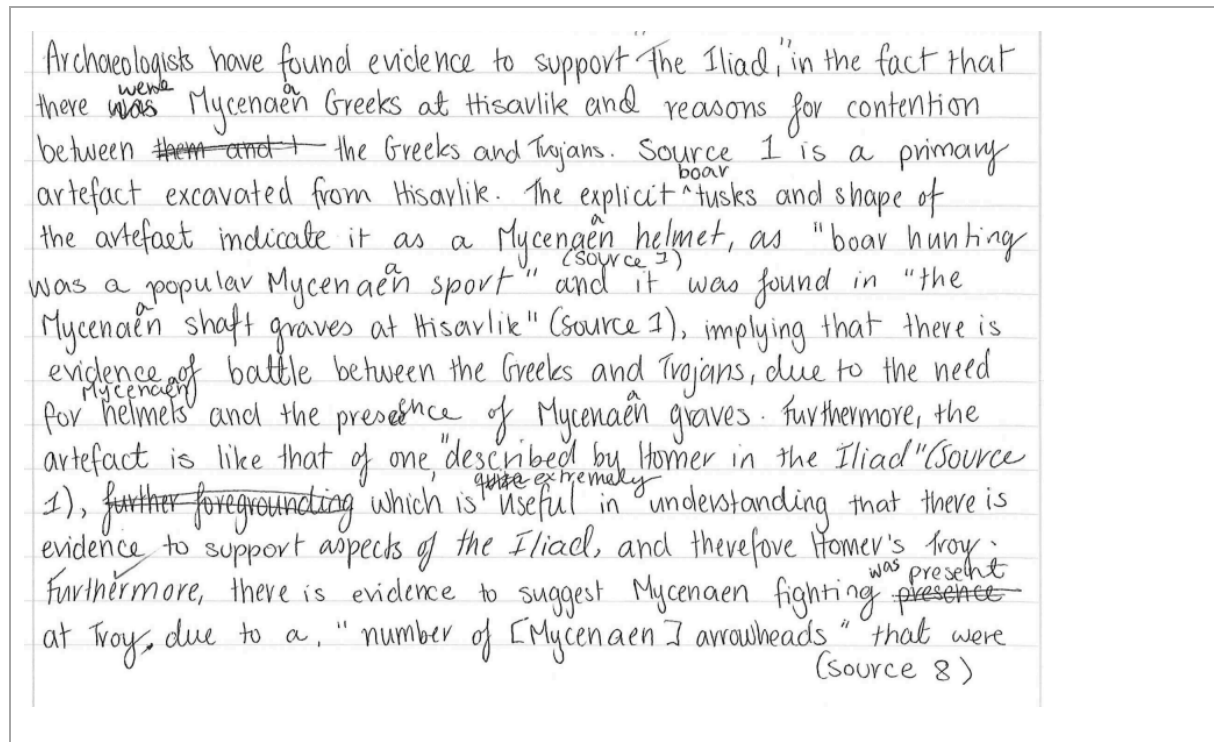 Archaeologists have found evidence to support "The Iliad," in the fact that
there were Mycenaean Greeks at Hisarlik and reasons for contention
between them and t the Greeks and Trojans. Source 1 is a primary
artefact excavated from Hisarlik. The explicit ^boar tusks and shape of
the artefact indicate it as a Mycenaean helmet, as "boar hunting
was a popular Mycenaean sport" (source 1) and it was found in "the
Mycenaean shaft graves at Hisarlik" (source 1), implying that there is
evidence of battle between the Greeks and Trojans, due to the need
for Mycenaen helmets and the presence of Mycenaean graves. Furthermore, the
artefact is like that of one, "described by Homer in the Iliad" (Source
1), further foregrounding which is quite extremely useful in understanding that there is
evidence to support aspects of the Iliad, and therefore Homer's Troy.
Furthermore, there is evidence to suggest Mycenaen fighting was present presence
at Troy, due to a, "number of [Mycenaen] arrowheads" that were
(source 8)